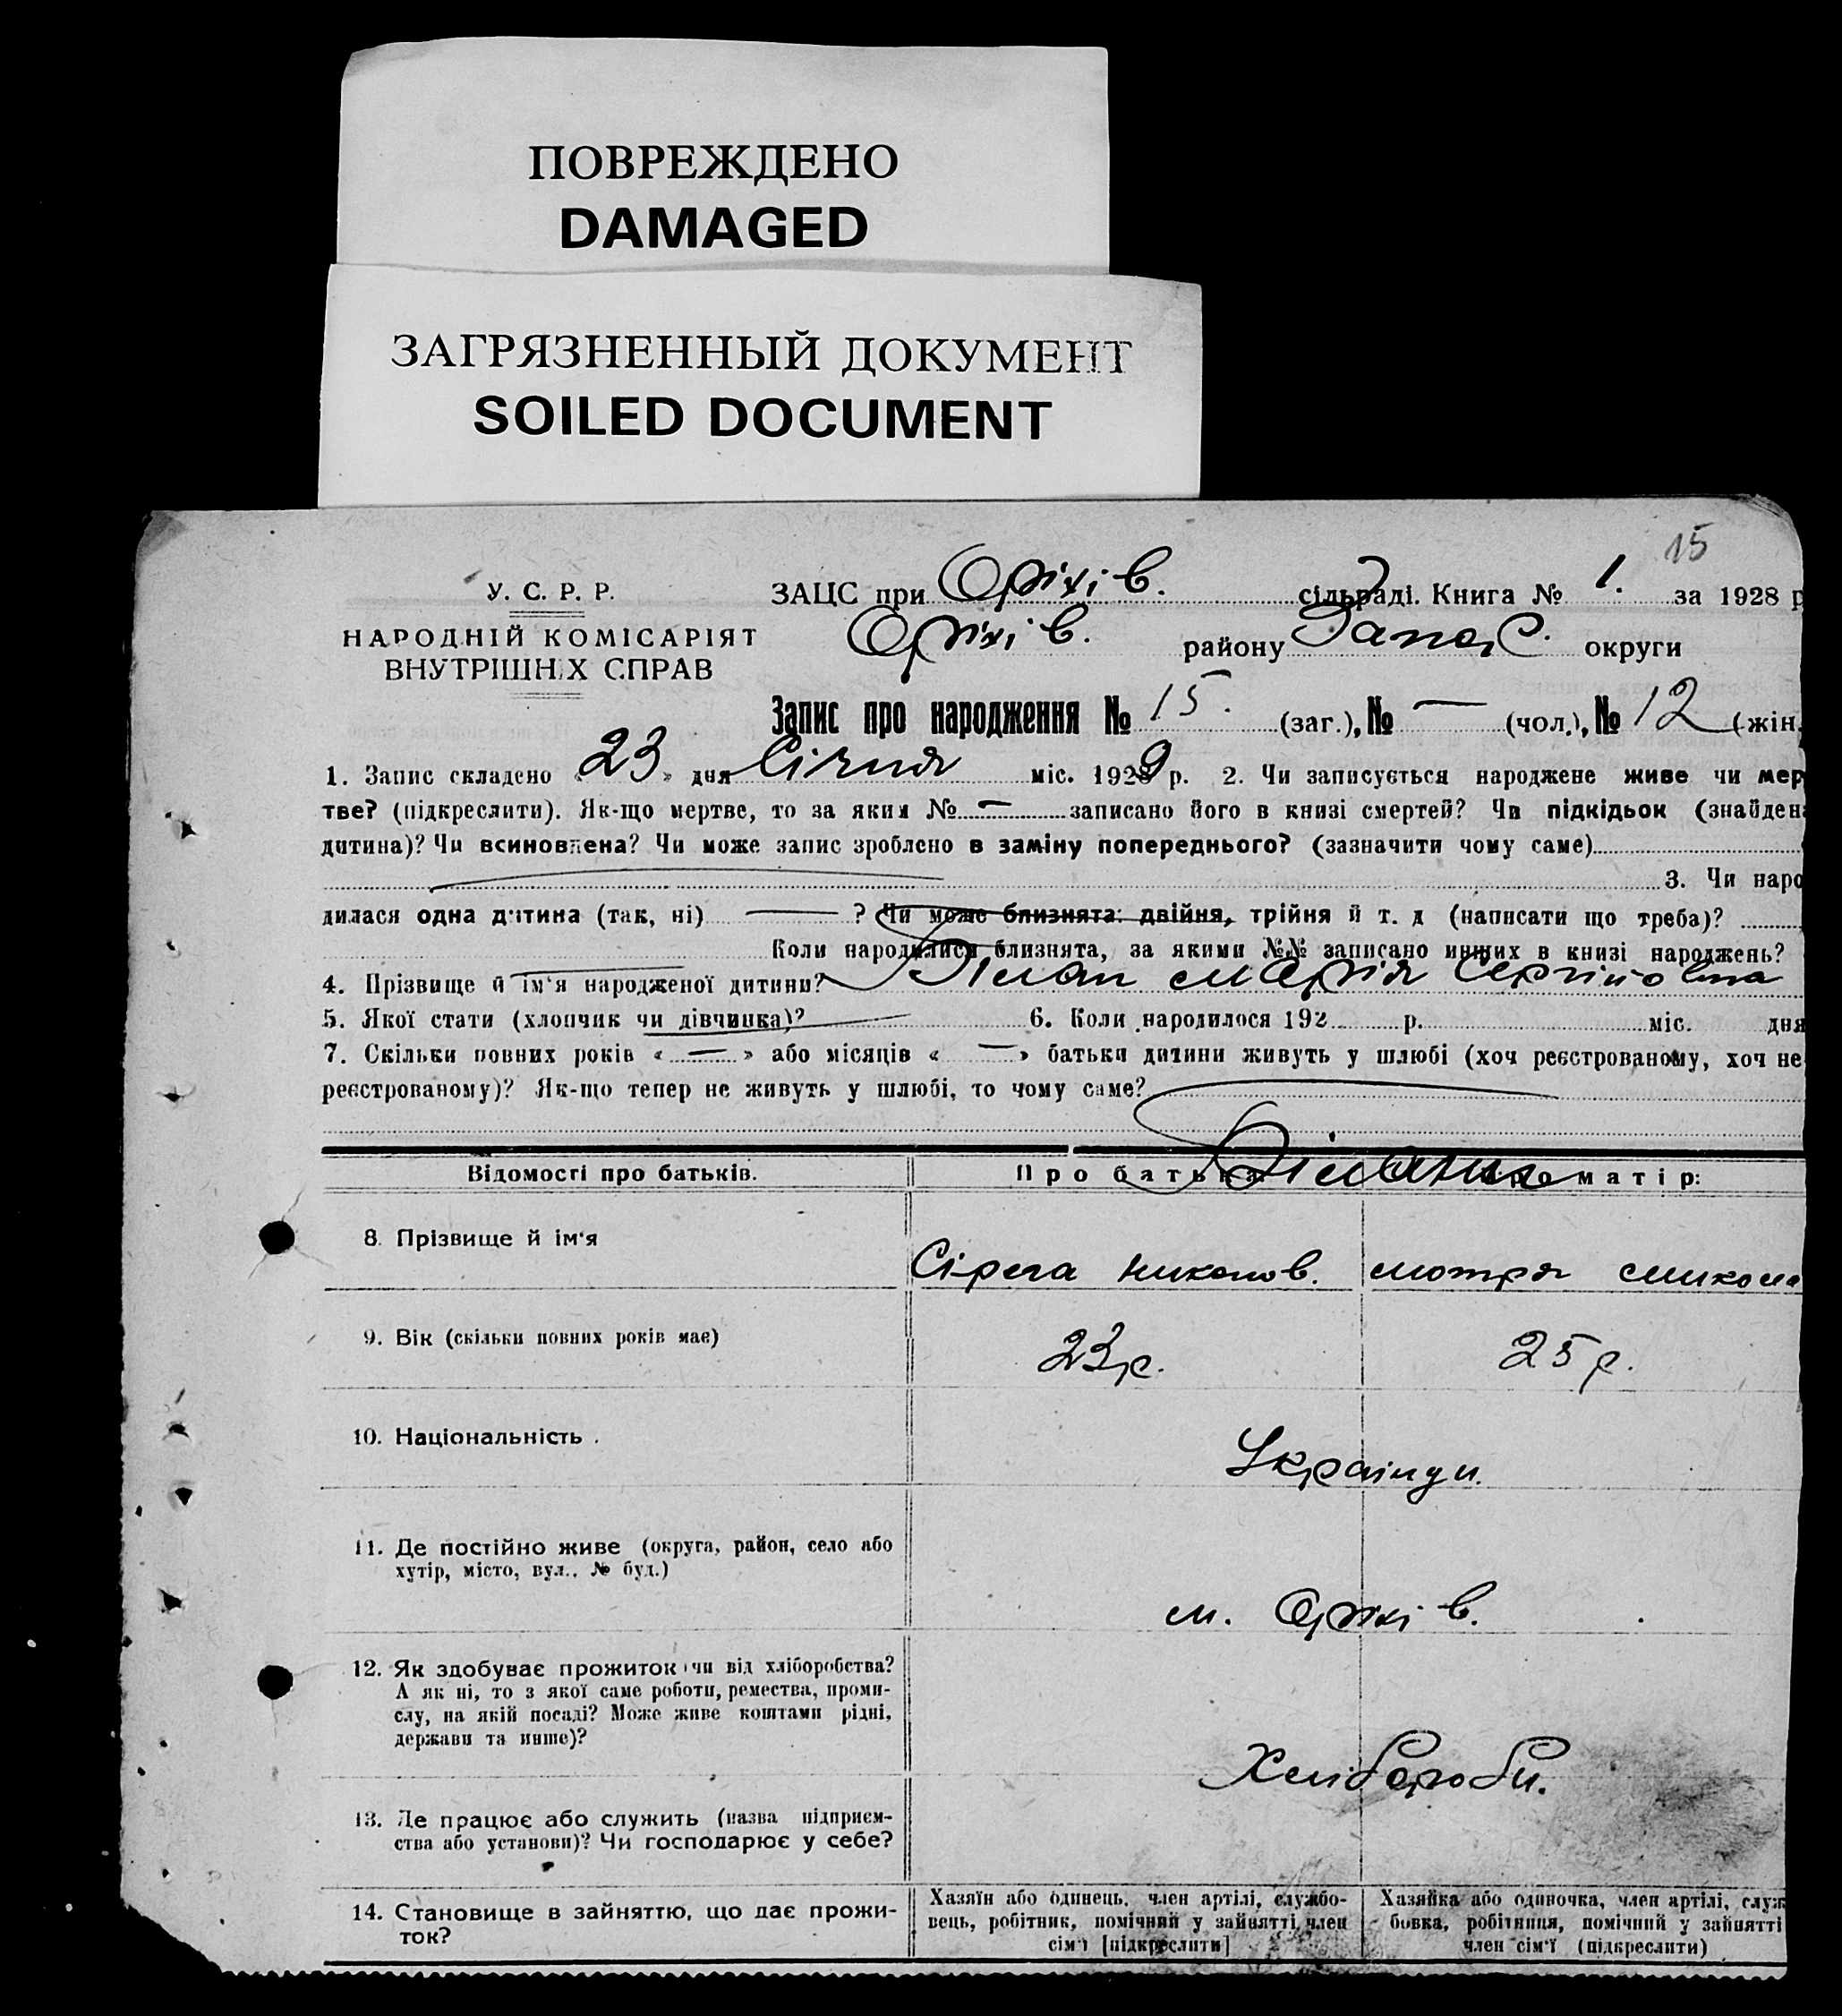 ПОВРЕЖДЕНО
DAMAGED
ЗАГРЯЗНЕННЫЙ ДОКУМЕНТ
SOILED DOCUMENT
15
У. С. Р. Р.
НАРОДНІЙ КОМІСАРІЯТ
ВНУТРІШНІХ СПРАВ
ЗАЦС при Оріхів. сільраді. Книга № 1. за 1928 р
Оріхів. району Запор. округи
Запис про народження № 15. (заг.), № — (чол.), № 12 (жін.
1. Запис складено «23» дня Січня міс. 1929 р. 2. Чи записується народжене живе чи мер
тве? (підкреслити). Як-що мертве, то за яким № — записано його в книзі смертей? Чи підкідьок (знайдена
дитина)? Чи всиновлена? Чи може запис зроблено в заміну попереднього? (зазначити чому саме)
3. Чи наро
дилася одна дитина (так, ні) — ? Чи може близнята: двійня, трійня й т. д (написати що треба)?
Коли народилися близнята, за якими №№ записано инших в книзі народжень?
4. Прізвище й ім'я народженої дитини? Діман Марія Сергійовна
5. Якої стати (хлопчик чи дівчинка)? 6. Коли народилося 192 р. міс. дня
7. Скільки повних років « — » або місяців « — » батьки дитини живуть у шлюбі (хоч реєстрованому, хоч не
реєстрованому)? Як-що тепер не живуть у шлюбі, то чому саме?
Відомості про батьків. Про батька Діман Про матір:
8. Прізвище й ім'я
Сірега Миконов. Мотря
9. Вік (скільки повних років має) 23 р. 25 р.
10. Національність . Українци.
11. Де постійно живе (округа, район, село або
хутір, місто, вул., № буд.)
м. Оріхів.
12. Як здобуває прожиток (чи від хліборобства?
А як ні, то з якої саме роботи, ремества, проми-
слу, на якій посаді? Може живе коштами рідні,
держави та инше)?
Хлібороби.
13. Де працює або служить (назва підприєм-
ства або установи)? Чи господарює у себе?
14. Становище в зайняттю, що дає прожи-
ток?
Хазяїн або одинець, член артілі, службо-
вець, робітник, помічний у зайнятті, член
сім'ї [підкреслити]
Хазяйка або одиночка, член артілі, служ
бовка, робітниця, помічний у зайнятті
член сім'ї (підкреслити)